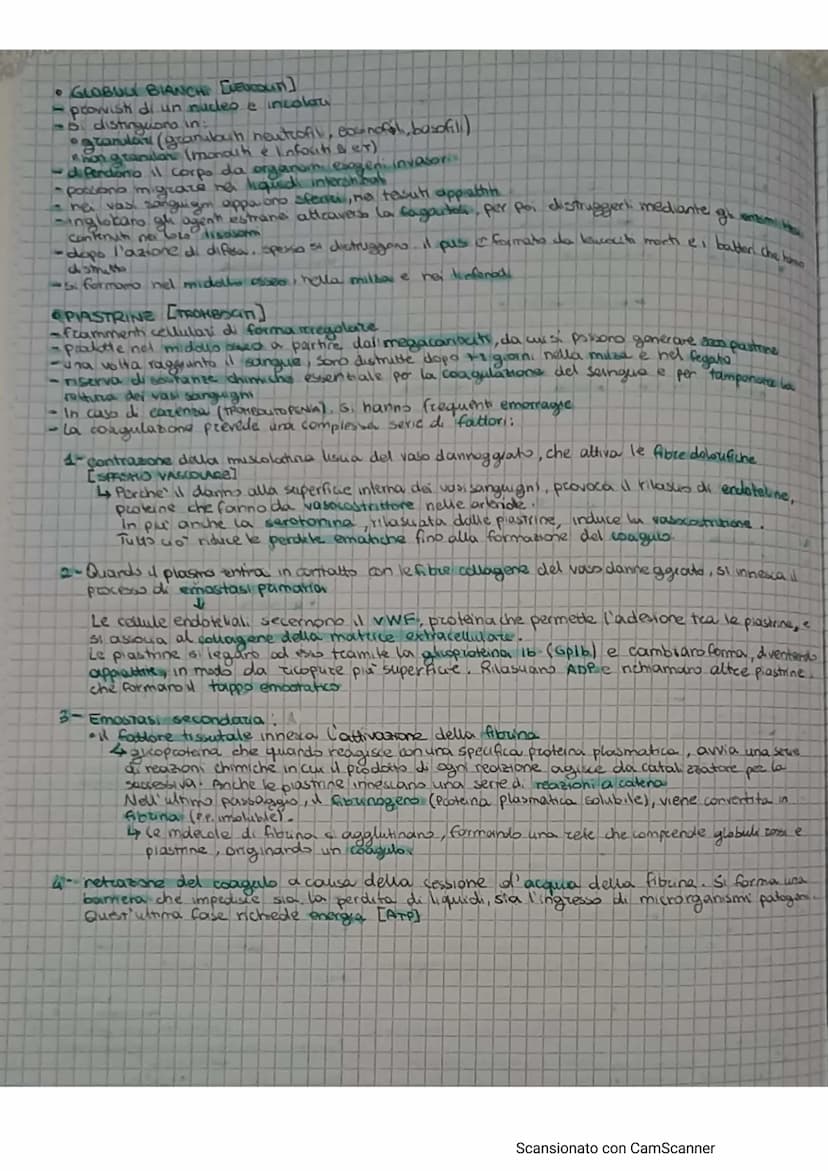 • GLOBULI BIANCHI [LEUCOCITI]
- provvisti di un nucleo e incolori
- si distinguono in:
• granulari (granulociti neutrofili, eosinofili, basofili)
• non granulari (monociti e linfociti B e T)
- difendono il corpo da organismi esogeni invasori
- possono migrare nei liquidi interstiziali
- nei vasi sanguigni appaiono sferici, nei tessuti appiattiti
- inglobano gli agenti estranei attraverso la fagocitosi, per poi distruggerli mediante gli enzimi
contenuti nei loro lisosomi
- dopo l'azione di difesa, spesso si distruggono. il pus è formato da leucociti morti e i batteri che hanno
distrutto
- si formano nel midollo osseo, nella milza e nei linfonodi
• PIASTRINE [TROMBOCITI]
- frammenti cellulari di forma irregolare
- prodotte nel midollo osseo a partire dai megacariociti, da cui si possono generare piastrine
- una volta raggiunto il sangue, sono distrutte dopo giorni nella milza e nel fegato
- riserva di sostanze chimiche essenziale per la coagulazione del sangue e per tamponare la
rottura dei vasi sanguigni
- In caso di carenza (TROMBOCITOPENIA), si hanno frequenti emorragie
- La coagulazione prevede una complessa serie di fattori:
1- contrazione della muscolatura liscia del vaso danneggiato, che attiva le fibre dolorifiche
[SPASMO VASCOLARE]
↳ Perche' il danno alla superficie interna dei vasi sanguigni, provoca il rilascio di endoteline,
proteine che fanno da vasocostrittore nelle arteriole.
In piu' anche la serotonina, rilasciata dalle piastrine, induce la vasocostrizione.
Tutto cio' riduce le perdite ematiche fino alla formazione del coagulo.
2- Quando il plasma entra in contatto con le fibre collagene del vaso danneggiato, si innesca il
processo di emostasi primaria
↓
Le cellule endoteliali secernono il VWF, proteina che permette l'adesione tra le piastrine, e
si associa al collagene della matrice extracellulare.
Le piastrine si legano ad esso tramite la glicoproteina 1b (Gp1b) e cambiano forma, diventando
appiattite, in modo da ricoprire più superficie. Rilasciano ADP e richiamano altre piastrine
che formano il tappo emostatico
3- Emostasi secondaria:
• il fattore tissutale innesca l'attivazione della fibrina
↳ glicoproteina che quando reagisce con una specifica proteina plasmatica, avvia una serie
di reazioni chimiche in cui il prodotto di ogni reazione agisce da catalizzatore per la
successiva. Anche le piastrine innescano una serie di reazioni a catena
Nell'ultimo passaggio, il fibrinogeno (proteina plasmatica solubile), viene convertita in
fibrina (p.p. insolubile).
↳ Le molecole di fibrina si agglutinano, formando una rete che comprende globuli rossi e
piastrine, originando un coagulo.
4- retrazione del coagulo a causa della cessione d'acqua della fibrina. Si forma una
barriera che impedisce sia la perdita di liquidi, sia l'ingresso di microrganismi patogeni.
Quest'ultima fase richiede energia [ATP]
Scansionato con CamScanner